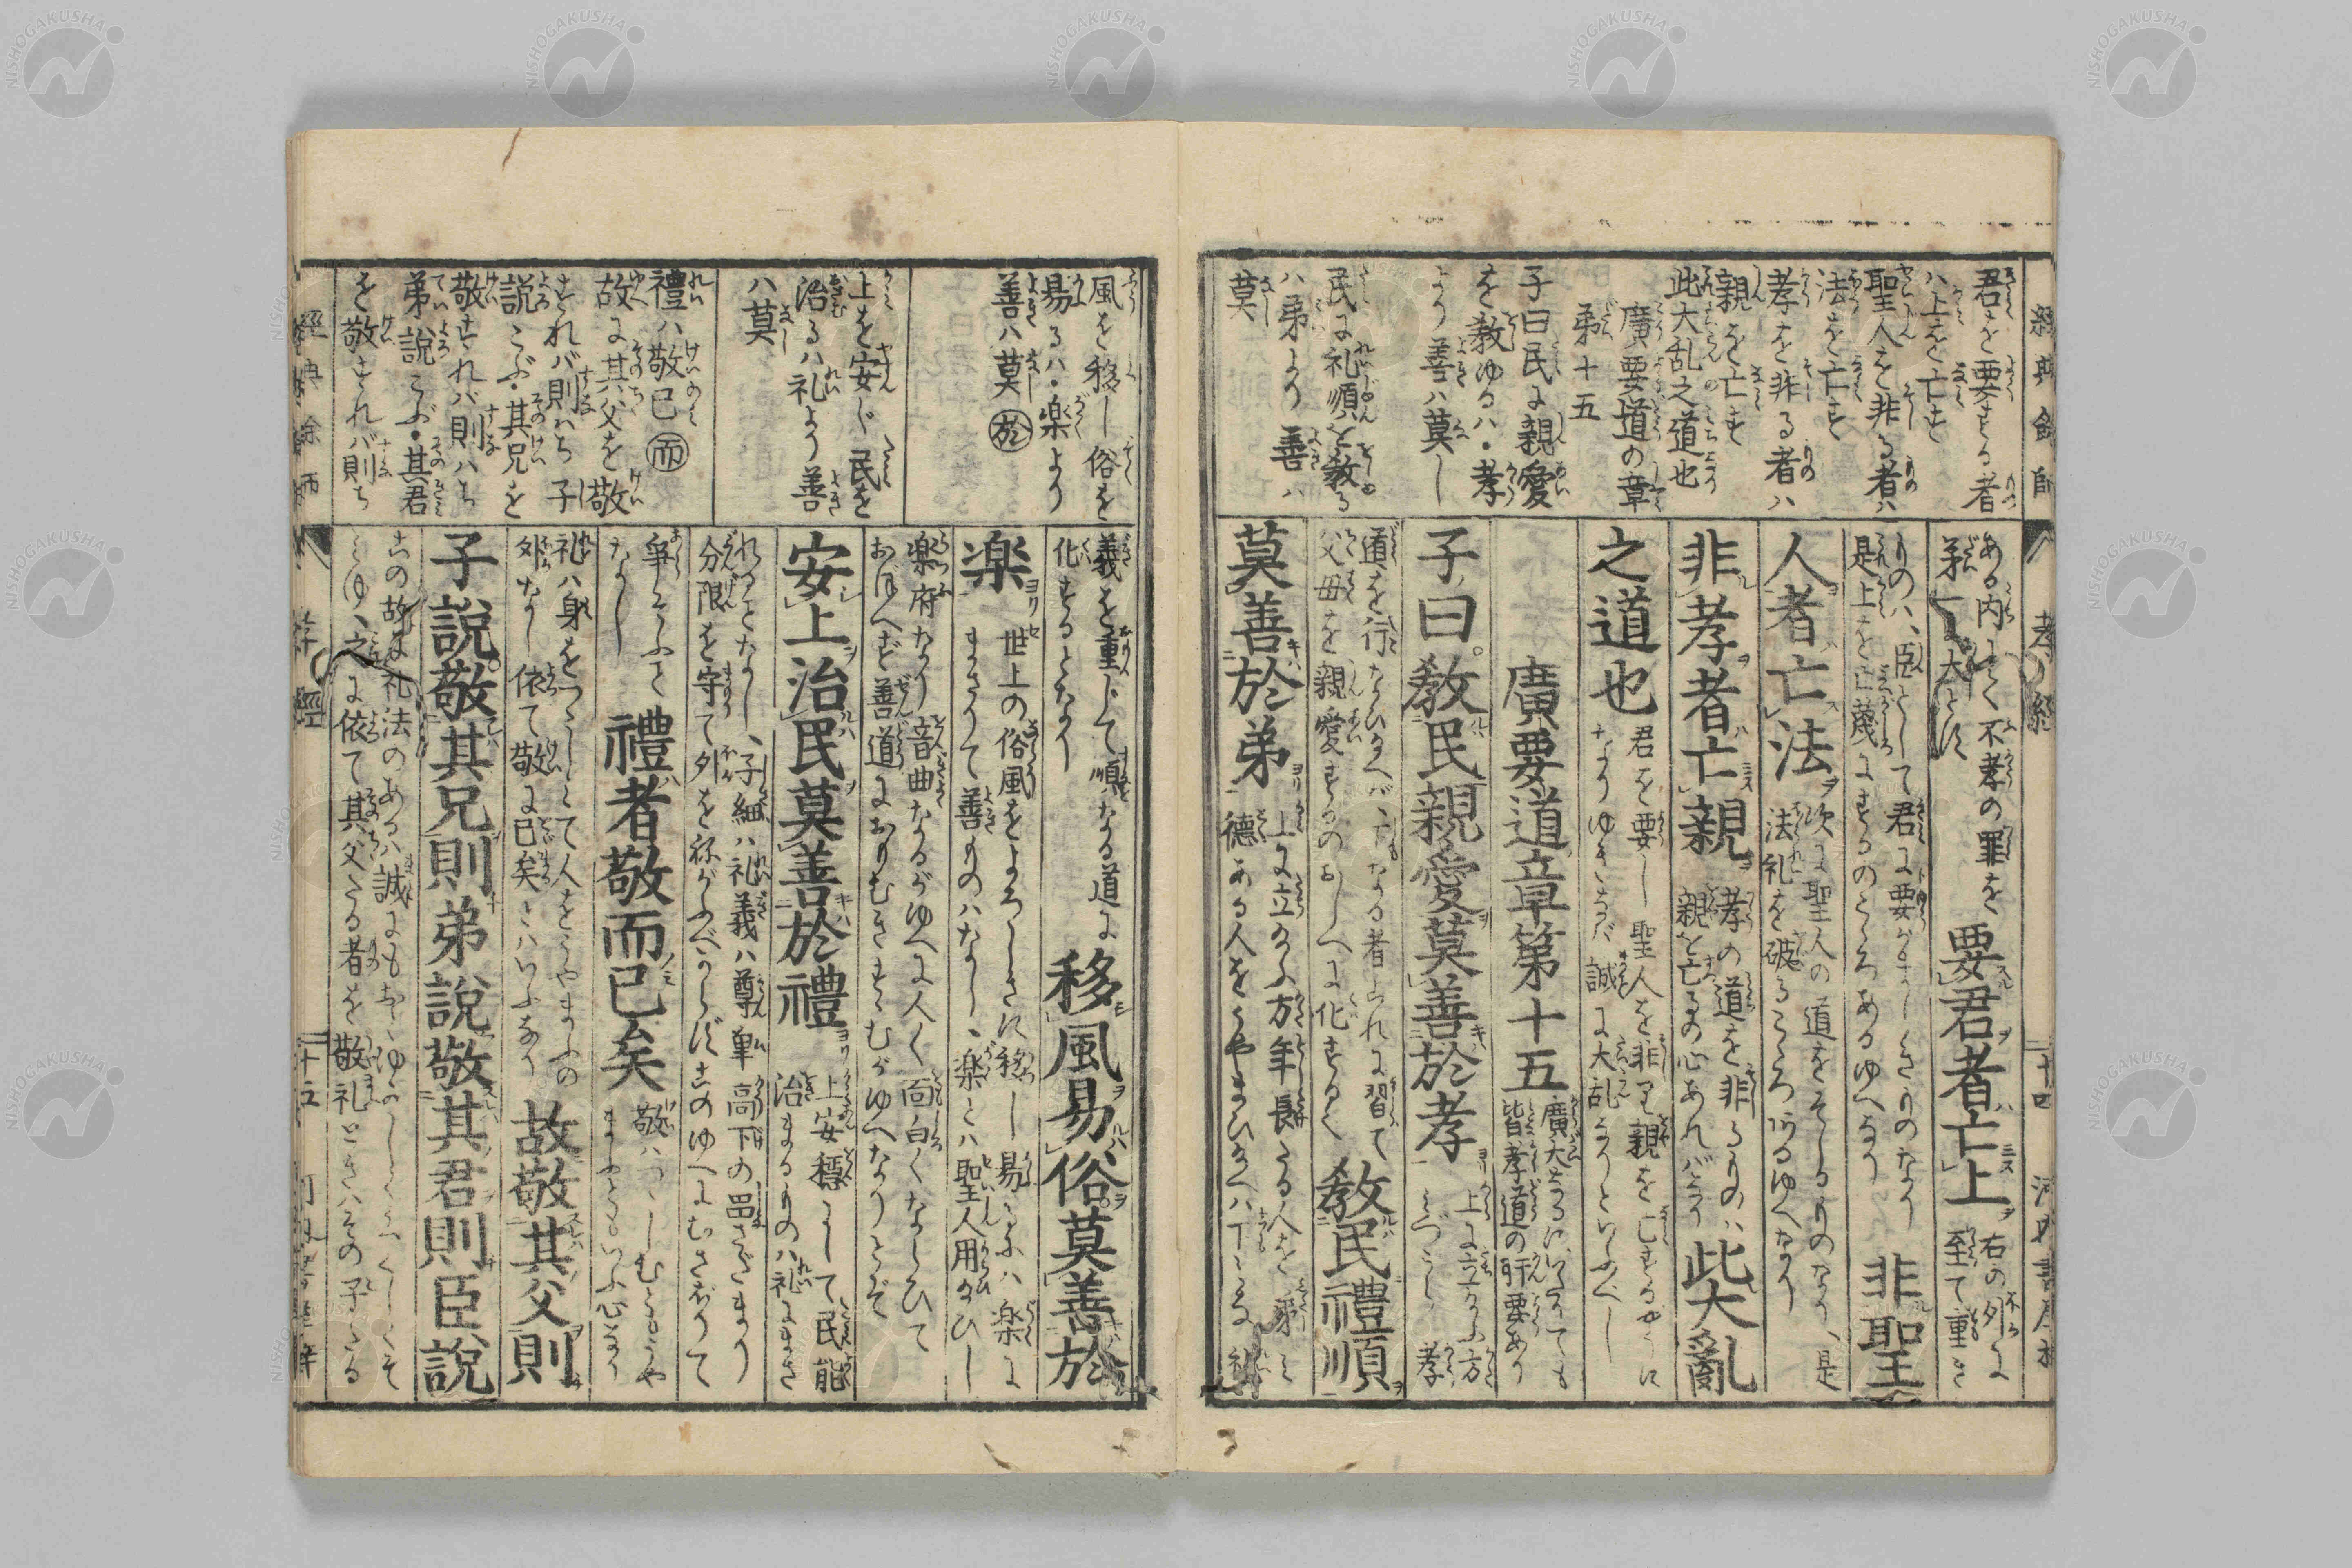 君を要する者
ハ上を亡す
聖人を非る者ハ
法を亡す
孝を非る者ハ
親を亡す
此大乱之道也
廣要道の章
第十五
子曰民に親愛
を教ゆるハ・孝
より善ハ莫し
民に礼順を教る
ハ弟より善ハ
莫
ある内にて不孝の罪を
第一に大とす
要君者亡上
右の外に
至て重き
ものハ、臣として君に要がましきものなり
是上を亡蔑にするのこころあるゆへなり
非聖
人者亡法
次に聖人の道をそしるものなり、是
法礼を破るこころあるゆへなり
非孝者亡親
孝の道を非るものハ
親を亡るの心あれバなり
此大亂
之道也
君を要し聖人を非り親を亡するゆへに
なりゆきなバ誠に大乱なりといふべし
廣要道章第十五
廣大なるにいたりても
皆孝道の肝要あり
子曰。教民親愛莫善於孝
上に立給ふ方
孝
道を行なひ給へバ、下なる者これに習て
父母を親愛するのおしへに化するく
教民禮順
莫善於弟
上に立給ふ方年長たる人を
徳ある人をうやまひ給へハ下
風を移し俗を
易るハ・楽より
善ハ莫 於
上を安じ民を
治るハ礼より善
ハ莫
禮ハ敬已 而
故に其父を敬
すれバ則ハち子
説こぶ・其兄を
敬すれバ則ハち
弟説こぶ・其君
を敬すれバ則ち
義を重じて順なる道に
化するとなり
移風易俗莫善於
楽
世上の俗風をよろしきに移し易るハ楽に
まさりて善ものハなし、楽とハ聖人用給ひし
楽府なり音曲なるがゆへに人く面白くならひて
おぼへず善道におもむきすすむがゆへなりとぞ
安上治民莫善於禮
上安穏にして民能
治まるものハ礼にまさ
れることなし、子細ハ礼義ハ尊卑高下の品さだまり
分限を守て外を祢がふべからずこのゆへにむさぼりて
争そふこと
なし
禮者敬而已矣
敬ハつつしむともうや
まふともいふ心なり
礼ハ身をつつしミて人をうやまふの
外なし依て敬に已矣とハいふなり
故敬其父則
子説敬其兄則弟説敬其君則臣説
この故に礼法のあるハ誠にも
こゆ、之に依て其父たる者を敬礼ときハその子たる
經典餘師
孝經
二十四
二十五